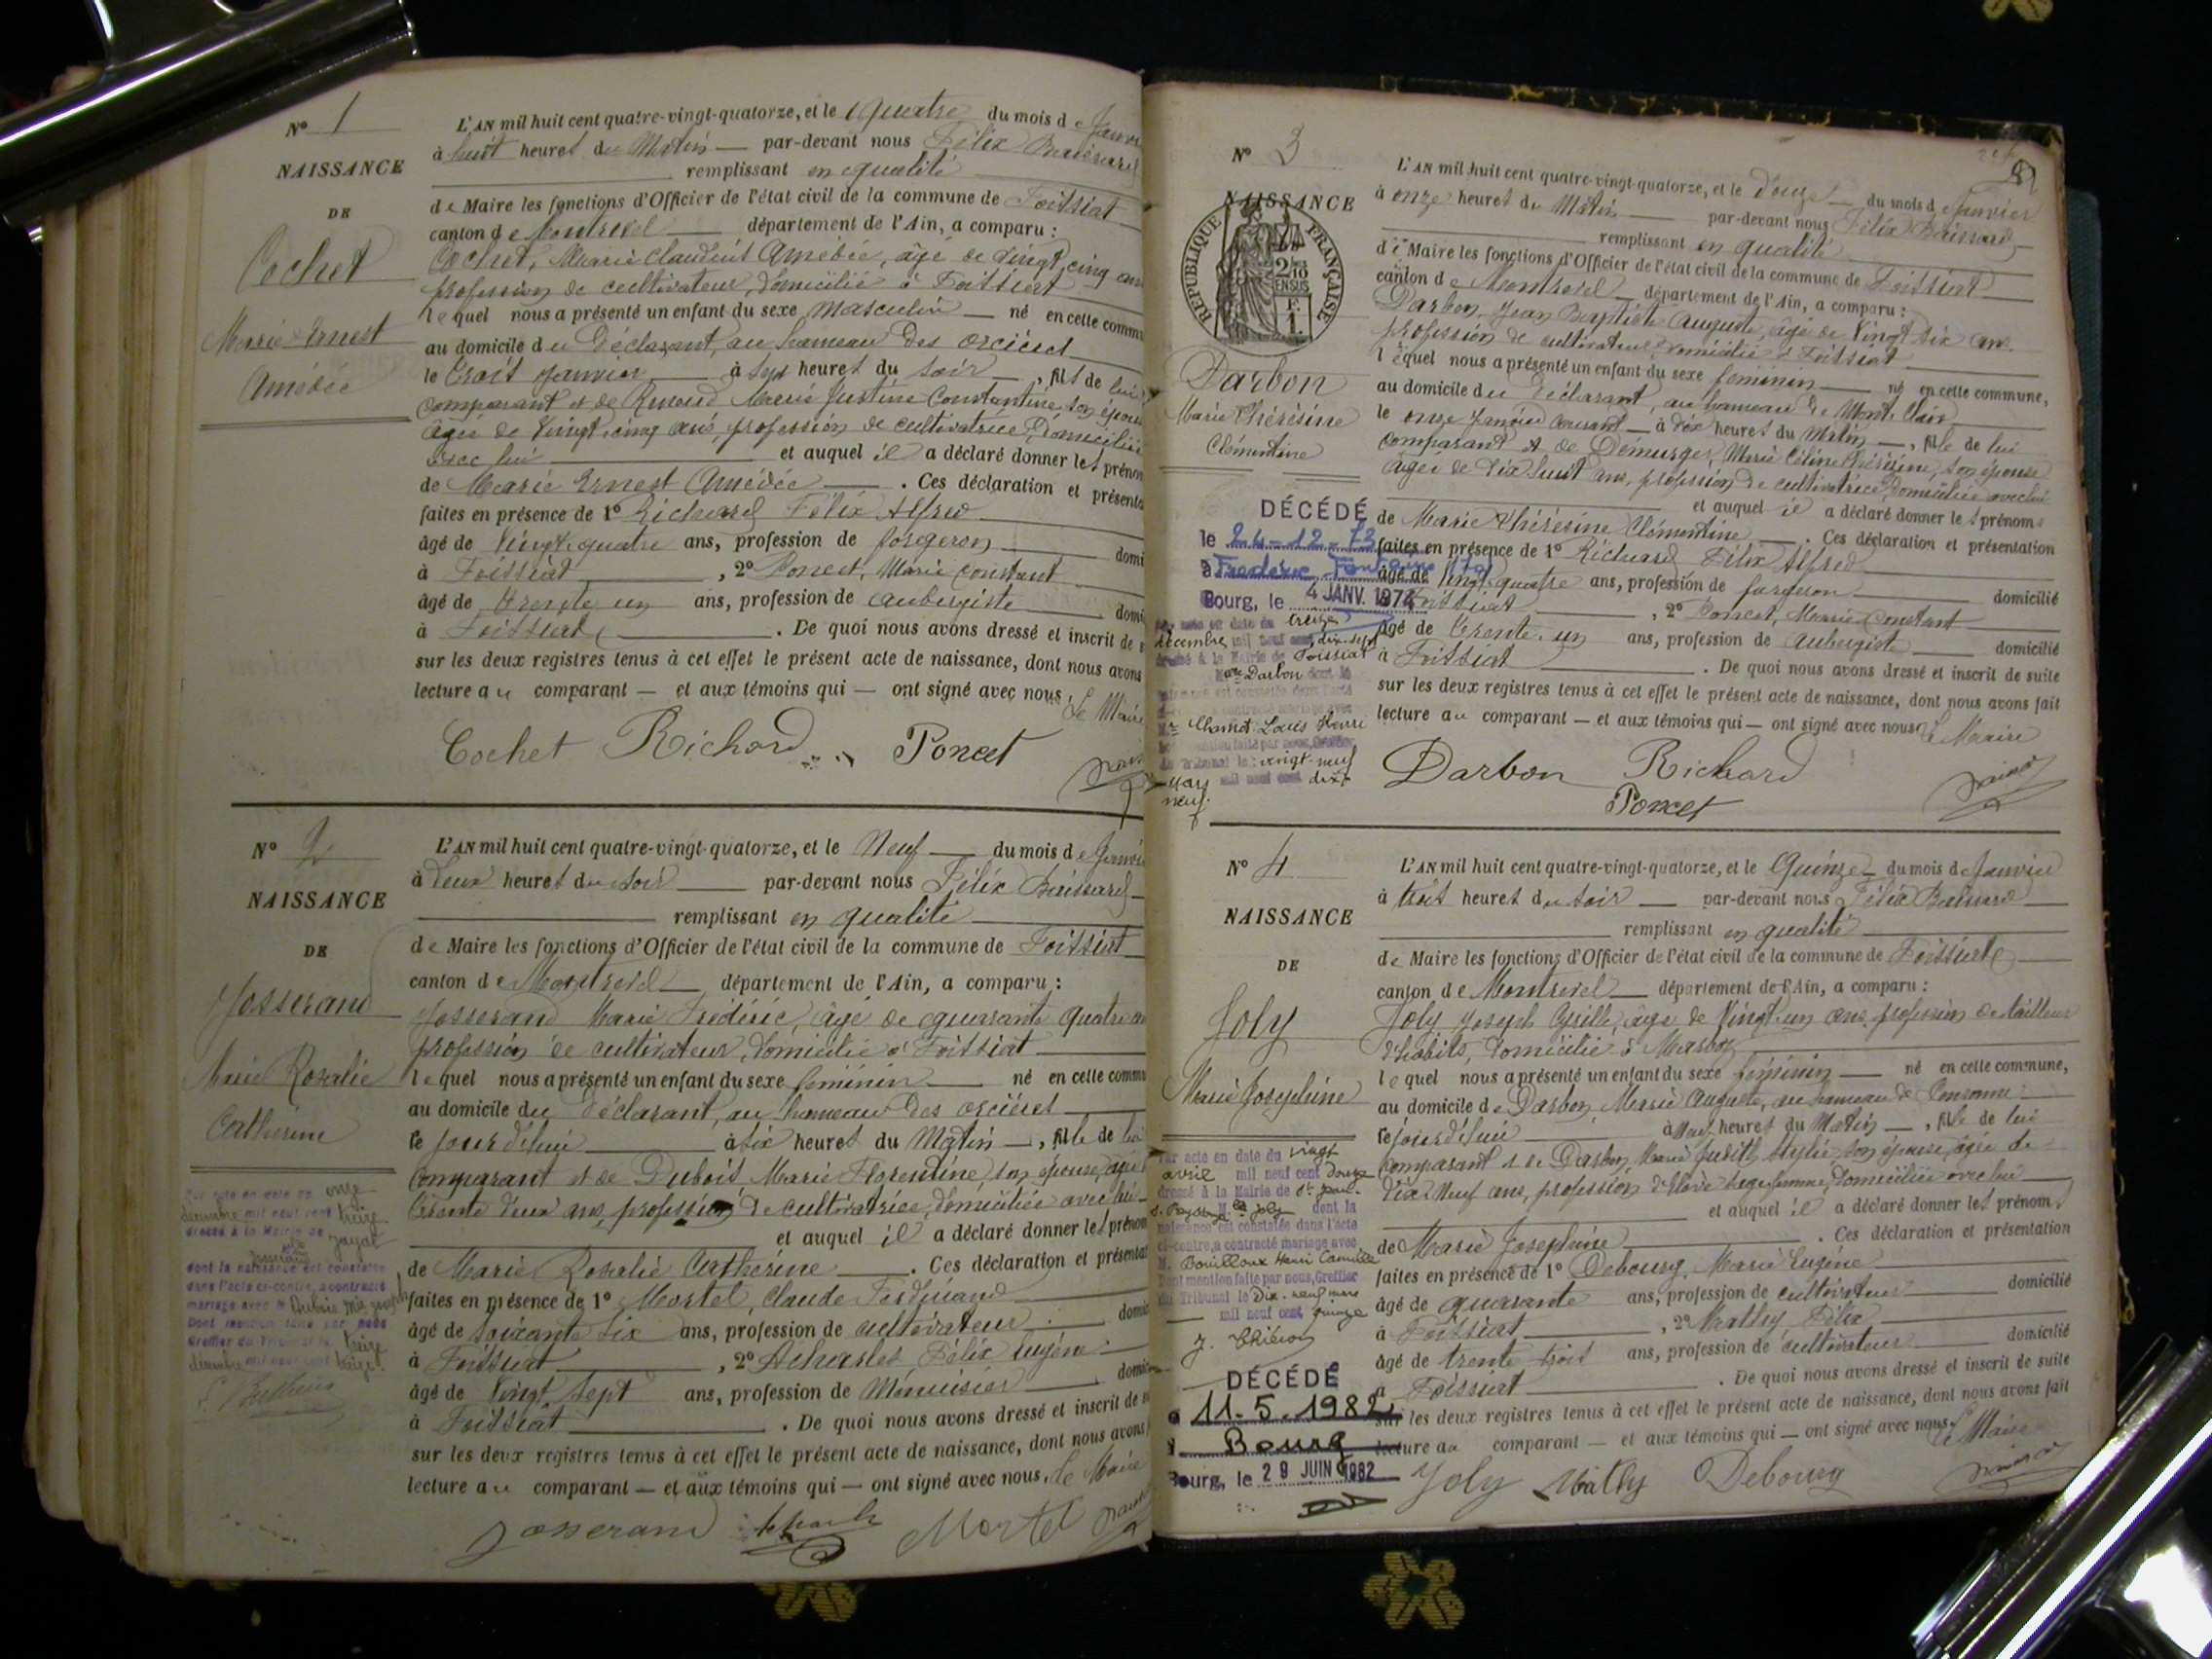 N° 1
NAISSANCE
DE
Cochet
Marie Ernest
Amédée
L'AN mil huit cent quatre-vingt-quatorze, et le quatre du mois de Janvier
à huit heures du Matin — par-devant nous Félix
remplissant en qualité
de Maire les fonctions d'Officier de l'état civil de la commune de Foissiat
canton de Montrevel département de l'Ain, a comparu :
Cochet, Marie Claudius Amédée, âgé de vingt cinq ans
profession de cultivateur, domicilié à Foissiat
lequel nous a présenté un enfant du sexe masculin — né en cette comm
au domicile du déclarant, au hameau des
le trois janvier à sept heures du soir, fils de lui
comparant et de Marie Justine Constantine, son épouse
âgée de vingt cinq ans, profession de cultivatrice, domiciliée
avec lui et auquel il a déclaré donner les prénom
de Marie Ernest Amédée . Ces déclaration et présenta
faites en présence de 1° Richard Félix Alfred
âgé de vingt quatre ans, profession de forgeron domi
à Foissiat , 2° Poncet, Marie Constant
âgé de trente un ans, profession de aubergiste domi
à Foissiat . De quoi nous avons dressé et inscrit de s
sur les deux registres tenus à cet effet le présent acte de naissance, dont nous avons
lecture au comparant — et aux témoins qui — ont signé avec nous, Le Maire
Cochet Richard Poncet
N° 2
NAISSANCE
DE
Josserand
Marie Rosalie
Catherine
L'AN mil huit cent quatre-vingt-quatorze, et le Neuf du mois de Janvier
à deux heures du soir par-devant nous Félix
remplissant en qualité
de Maire les fonctions d'Officier de l'état civil de la commune de Foissiat
canton de Montrevel département de l'Ain, a comparu :
Josserand Marie Frédéric, âgé de quarante quatre an
profession de cultivateur, domicilié à Foissiat
lequel nous a présenté un enfant du sexe féminin né en cette comm
au domicile du déclarant, au hameau des
le jourd'hui à six heures du Matin —, fille de lui
comparant et de Dubois Marie Florentine, son épouse, âgée
trente deux ans, profession de cultivatrice, domiciliée avec lui
et auquel il a déclaré donner les prénom
de Marie Rosalie Catherine . Ces déclaration et présentat
faites en présence de 1° Mortel, Claude Ferdinand
âgé de soixante six ans, profession de cultivateur domic
à Foissiat , 2° Félix Eugène
âgé de vingt sept ans, profession de Menuisier domic
à Foissiat . De quoi nous avons dressé et inscrit de s
sur les deux registres tenus à cet effet le présent acte de naissance, dont nous avons
lecture au comparant — et aux témoins qui — ont signé avec nous, Le Maire
Josserand Mortel
onze
décembre mil neuf cent treize
dressé à la Mairie de Jayat
dont la naissance est constatée
dans l'acte ci-contre, a contracté
mariage avec
Dont mention faite par nous
Greffier du Tribunal le treize
décembre mil neuf cent treize
N° 3
NAISSANCE
REPUBLIQUE FRANÇAISE
2/10 EN SUS
F.
1.
Darbon
Marie Thérésine
Clémentine
L'AN mil huit cent quatre-vingt-quatorze, et le douze du mois de Janvier
à onze heures du Matin par-devant nous Félix
remplissant en qualité
de Maire les fonctions d'Officier de l'état civil de la commune de Foissiat
canton de Montrevel département de l'Ain, a comparu :
Darbon, Jean Baptiste Auguste, âgé de vingt six ans
profession de cultivateur, domicilié à Foissiat
lequel nous a présenté un enfant du sexe féminin né en cette commune,
au domicile du déclarant, au hameau de
le onze janvier courant — à dix heures du Matin —, fille de lui
comparant et de Demurger, Marie Céline Thérésine, son épouse
âgée de dix huit ans, profession de cultivatrice, domiciliée avec lui
et auquel il a déclaré donner les prénoms
de Marie Thérésine Clémentine. — . Ces déclaration et présentation
faites en présence de 1° Richard Félix Alfred
âgé de vingt quatre ans, profession de forgeron domicilié
à Foissiat , 2° Poncet, Marie Constant
âgé de trente un ans, profession de aubergiste domicilié
à Foissiat . De quoi nous avons dressé et inscrit de suite
sur les deux registres tenus à cet effet le présent acte de naissance, dont nous avons fait
lecture au comparant — et aux témoins qui — ont signé avec nous, Le Maire
Darbon Richard
Poncet
DÉCÉDÉ
le 24-12-73
Bourg, le 4 JANV. 1974
treize
décembre mil neuf cent dix-sept
dressé à la Mairie de Foissiat
Darbon dont la
Chanet Louis Henri
vingt-neuf
Mars mil neuf cent dix
neuf.
N° 4
NAISSANCE
DE
Joly
Marie Joséphine
L'AN mil huit cent quatre-vingt-quatorze, et le Quinze du mois de Janvier
à trois heures du soir — par-devant nous Félix
remplissant en qualité
de Maire les fonctions d'Officier de l'état civil de la commune de Foissiat
canton de Montrevel département de l'Ain, a comparu :
Joly Joseph Cyrille, âgé de vingt un ans, profession de tailleur
d'habits, domicilié à
lequel nous a présenté un enfant du sexe féminin — né en cette commune,
au domicile de Darbon, Marie Auguste, au hameau de
le jourd'hui à heures du Matin —, fille de lui
comparant et de Darbon, Marie Judith, son épouse, âgée de
dix neuf ans, profession d'élève sage femme, domiciliée avec lui
et auquel il a déclaré donner le prénoms
de Marie Joséphine . Ces déclaration et présentation
faites en présence de 1° Debourg, Marie Eugène
âgé de quarante ans, profession de cultivateur domicilié
à Foissiat , 2° Mathy Félix
âgé de trente trois ans, profession de cultivateur domicilié
à Foissiat . De quoi nous avons dressé et inscrit de suite
sur les deux registres tenus à cet effet le présent acte de naissance, dont nous avons fait
lecture au comparant — et aux témoins qui — ont signé avec nous, Le Maire
Joly Mathy Debourg
Par acte en date du vingt
avril mil neuf cent douze
dressé à la Mairie de St Jean-
s. Reyssouze Joly dont la
naissance est constatée dans l'acte
ci-contre, a contracté mariage avec
M. Bouilloux Henri Camille
Dont mention faite par nous, Greffier
du Tribunal le Dix-neuf mars
mil neuf cent quinze
DÉCÉDÉ
11.5.1982
à Bourg
Bourg, le 29 JUIN 1982